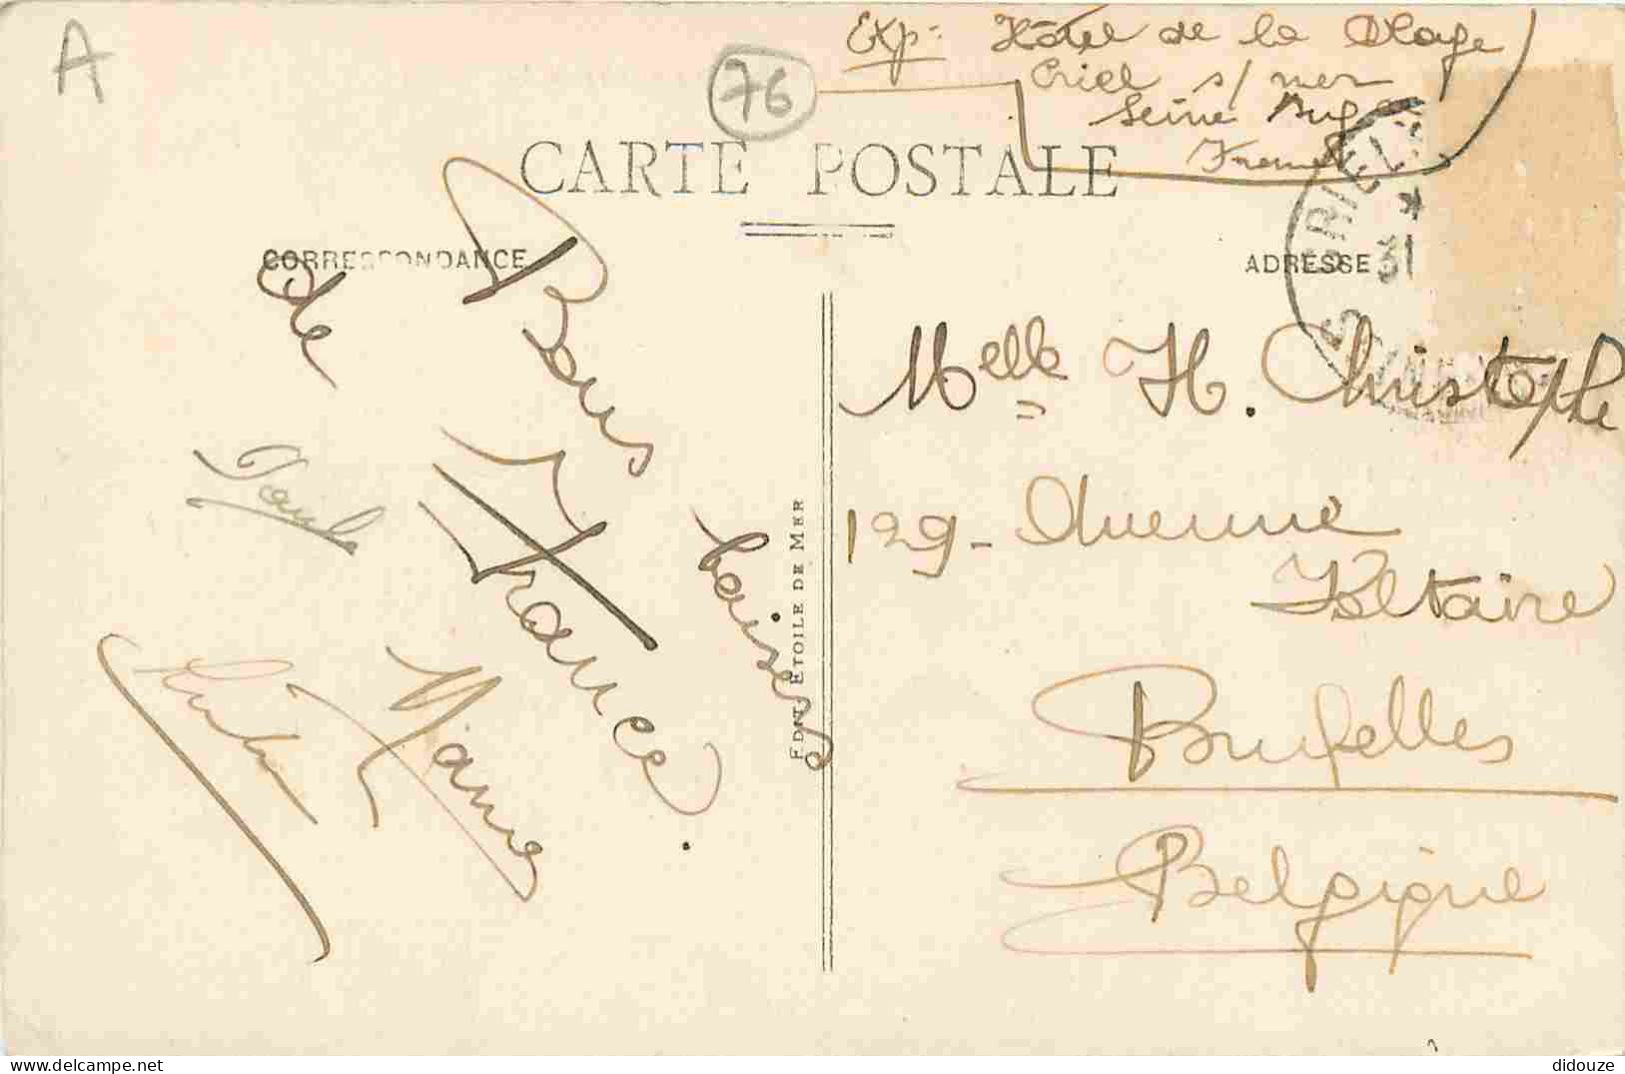 A
76
Exp: Hôtel de la Plage
Criel s/ mer
Seine Inf
France
CARTE POSTALE
CORRESPONDANCE
ADRESSE
CRIEL
31
Bons baisers
de France.
Paule
Mame
EDIT. ETOILE DE MER
Melle H. Christophe
129 - Avenue
Voltaire
Bruxelles
Belgique
didouze